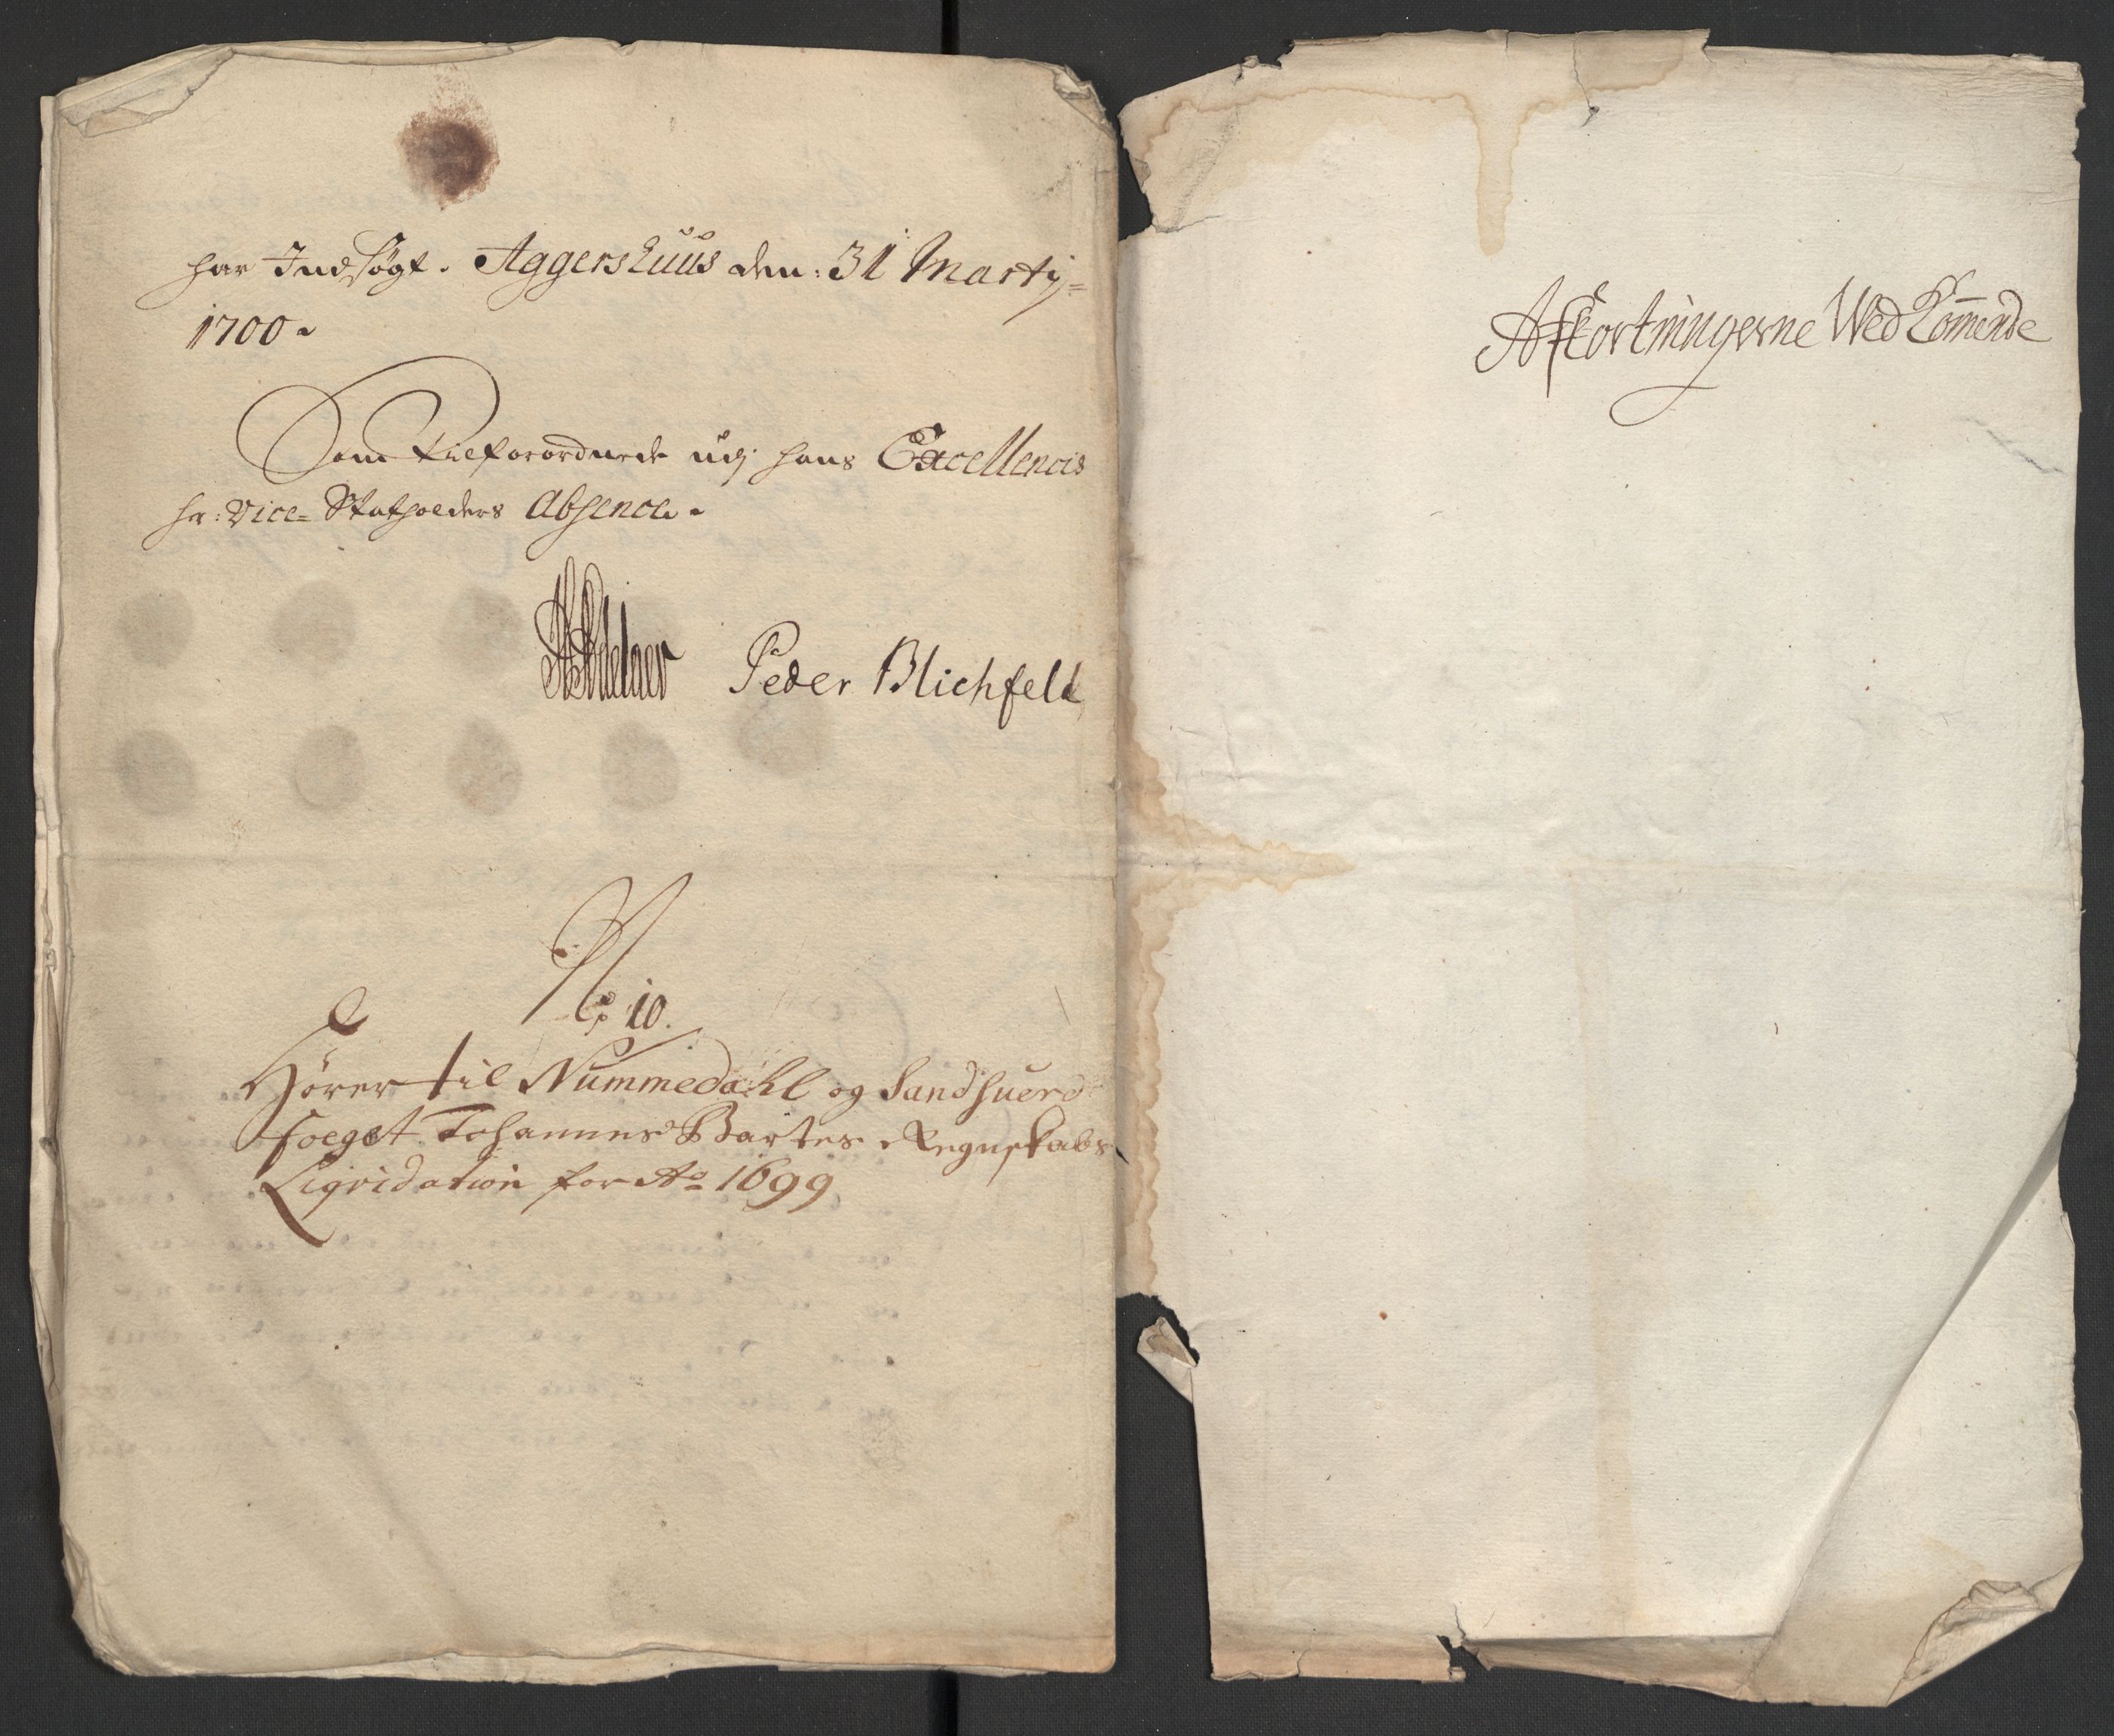 har Indsøgt. Aggershuus den: 31 Martij=
1700.
Som tilforordnede udj hans Excellences
hr: Vice= Statholders Absence.
Peder Blichfeld
N: 10.
Hører til Nummedahl og Sandsuerd
foeget Johannes Bartes Regnskabs
Liqvidation for Ao 1699
Afkortningerne Wed Kom̄ende